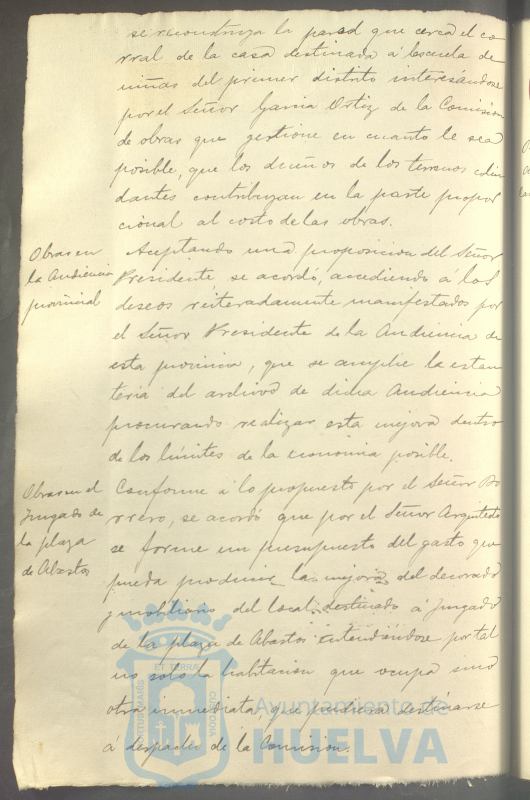 se reconstruya la pared que cerca el co
rral de la casa destinada á Escuela de
niñas del primer distrito interesándose
por el Señor Garcia Ortiz de la Comisión
de obras que gestione en cuanto le sea
posible, que los dueños de los terrenos colin
dantes contribuyan en la parte propor
cional al costo de las obras.
Obras en
la Audiencia
provincial
Aceptando una proposicion del Señor
Presidente se acordó, accediendo á los
deseos reiteradamente manifestados por
el Señor Presidente de la Audiencia de
esta provincia, que se amplie la estan
teria del archivo de dicha Audiencia
procurando realizar esta mejora dentro
de los límites de la economia posible.
Obras en el
Juzgado de
la plaza
de Abastos
Conforme á lo propuesto por el Señor Bo
rrero, se acordó que por el Señor Arquitecto
se forme un presupuesto del gasto que
pueda producir la mejora del decorado
y mobiliario del local destinado á Juzgado
de la plaza de Abastos entendiéndose por tal
no solo la habitacion que ocupa sino
otra inmediata, que pudiera destinarse
á despacho de la Comisión.
ET TERRÆ
CUSTODIA
Ayuntamiento de
HUELVA